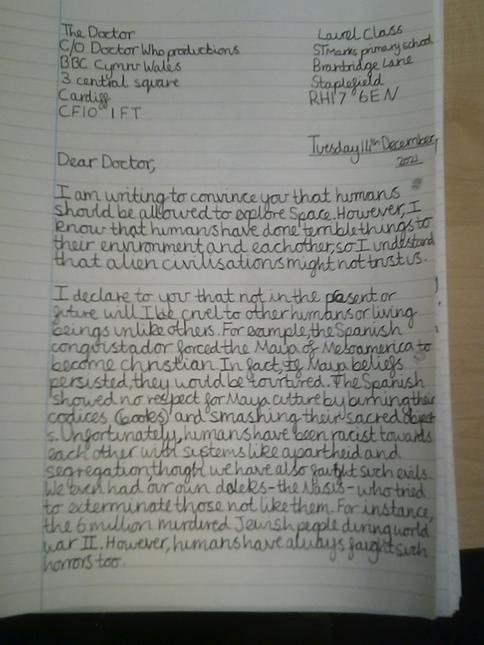 The Doctor
C/O Doctor Who productions
BBC Cymru Wales
3 central square
Cardiff
CF10 1FT
Laurel Class
ST Marks primary school
Brantridge Lane
Staplefield
RH17 6EN
Tuesday 14th December,
2021
Dear Doctor,
I am writing to convince you that humans
should be allowed to explore Space. However, I
know that humans have done terrible things to
their environment and eachother, so I understand
that alien civilisations might not trust us.
I declare to you that not in the present or
future will I be cruel to other humans or living
beings unlike others. For example, the Spanish
conquistador forced the Maya of Mesoamerica to
become christian. In fact, if Maya beliefs
persisted, they would be tourtured. The Spanish
showed no respect for Maya culture by burning their
codices (books) and smashing their sacred object
s. Unfortunately, humans have been racist towards
each other with systems like apartheid and
segregation, though we have also faught such evils.
We even had our own daleks - the Nasis - who tried
to exterminate those not like them. For instance,
the 6 million murdured Jewish people during world
war II. However, humans have always faught such
horrors too.